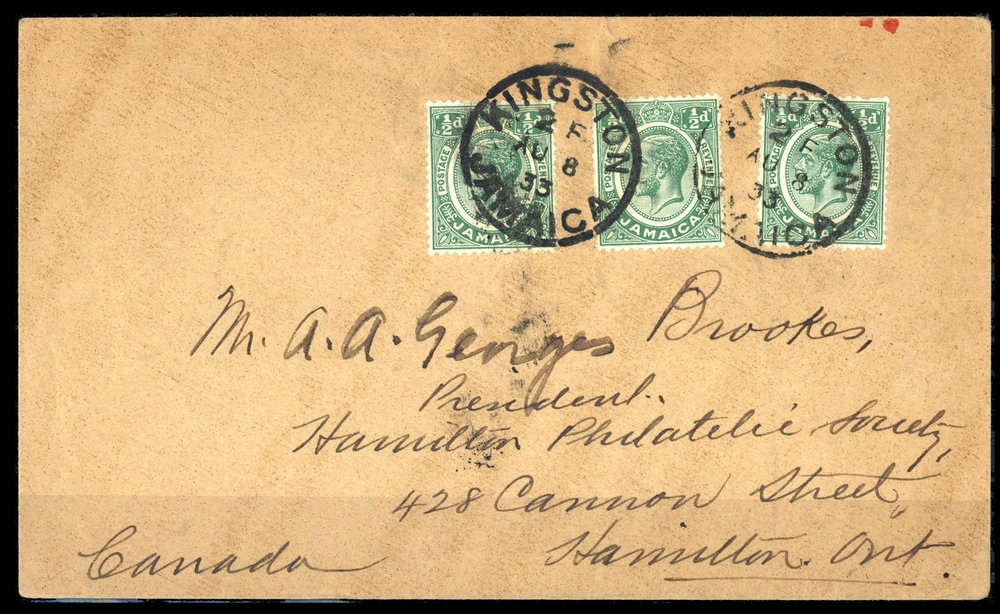 ½d ½d
POSTAGE REVENUE
JAMAICA
KINGSTON
2 F
AU 8
33
JAMAICA
½d
POSTAGE REVENUE
JAMAICA
KINGSTON
2 F
AU 8
33
½d ½d
REVENUE
JAMAICA
Mr. A. A. Georges Brookes,
President.
Hamilton Philatelic Society,
428 Cannon Street,
Hamilton. Ont.
Canada